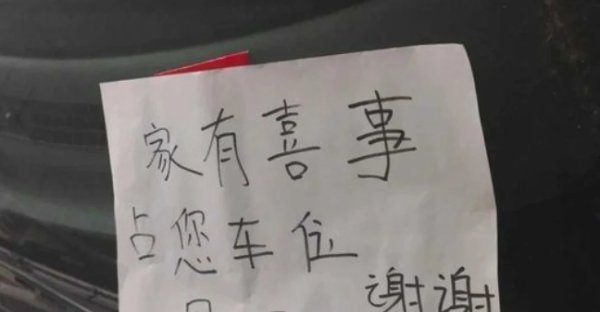 家有喜事
占您车位
谢谢